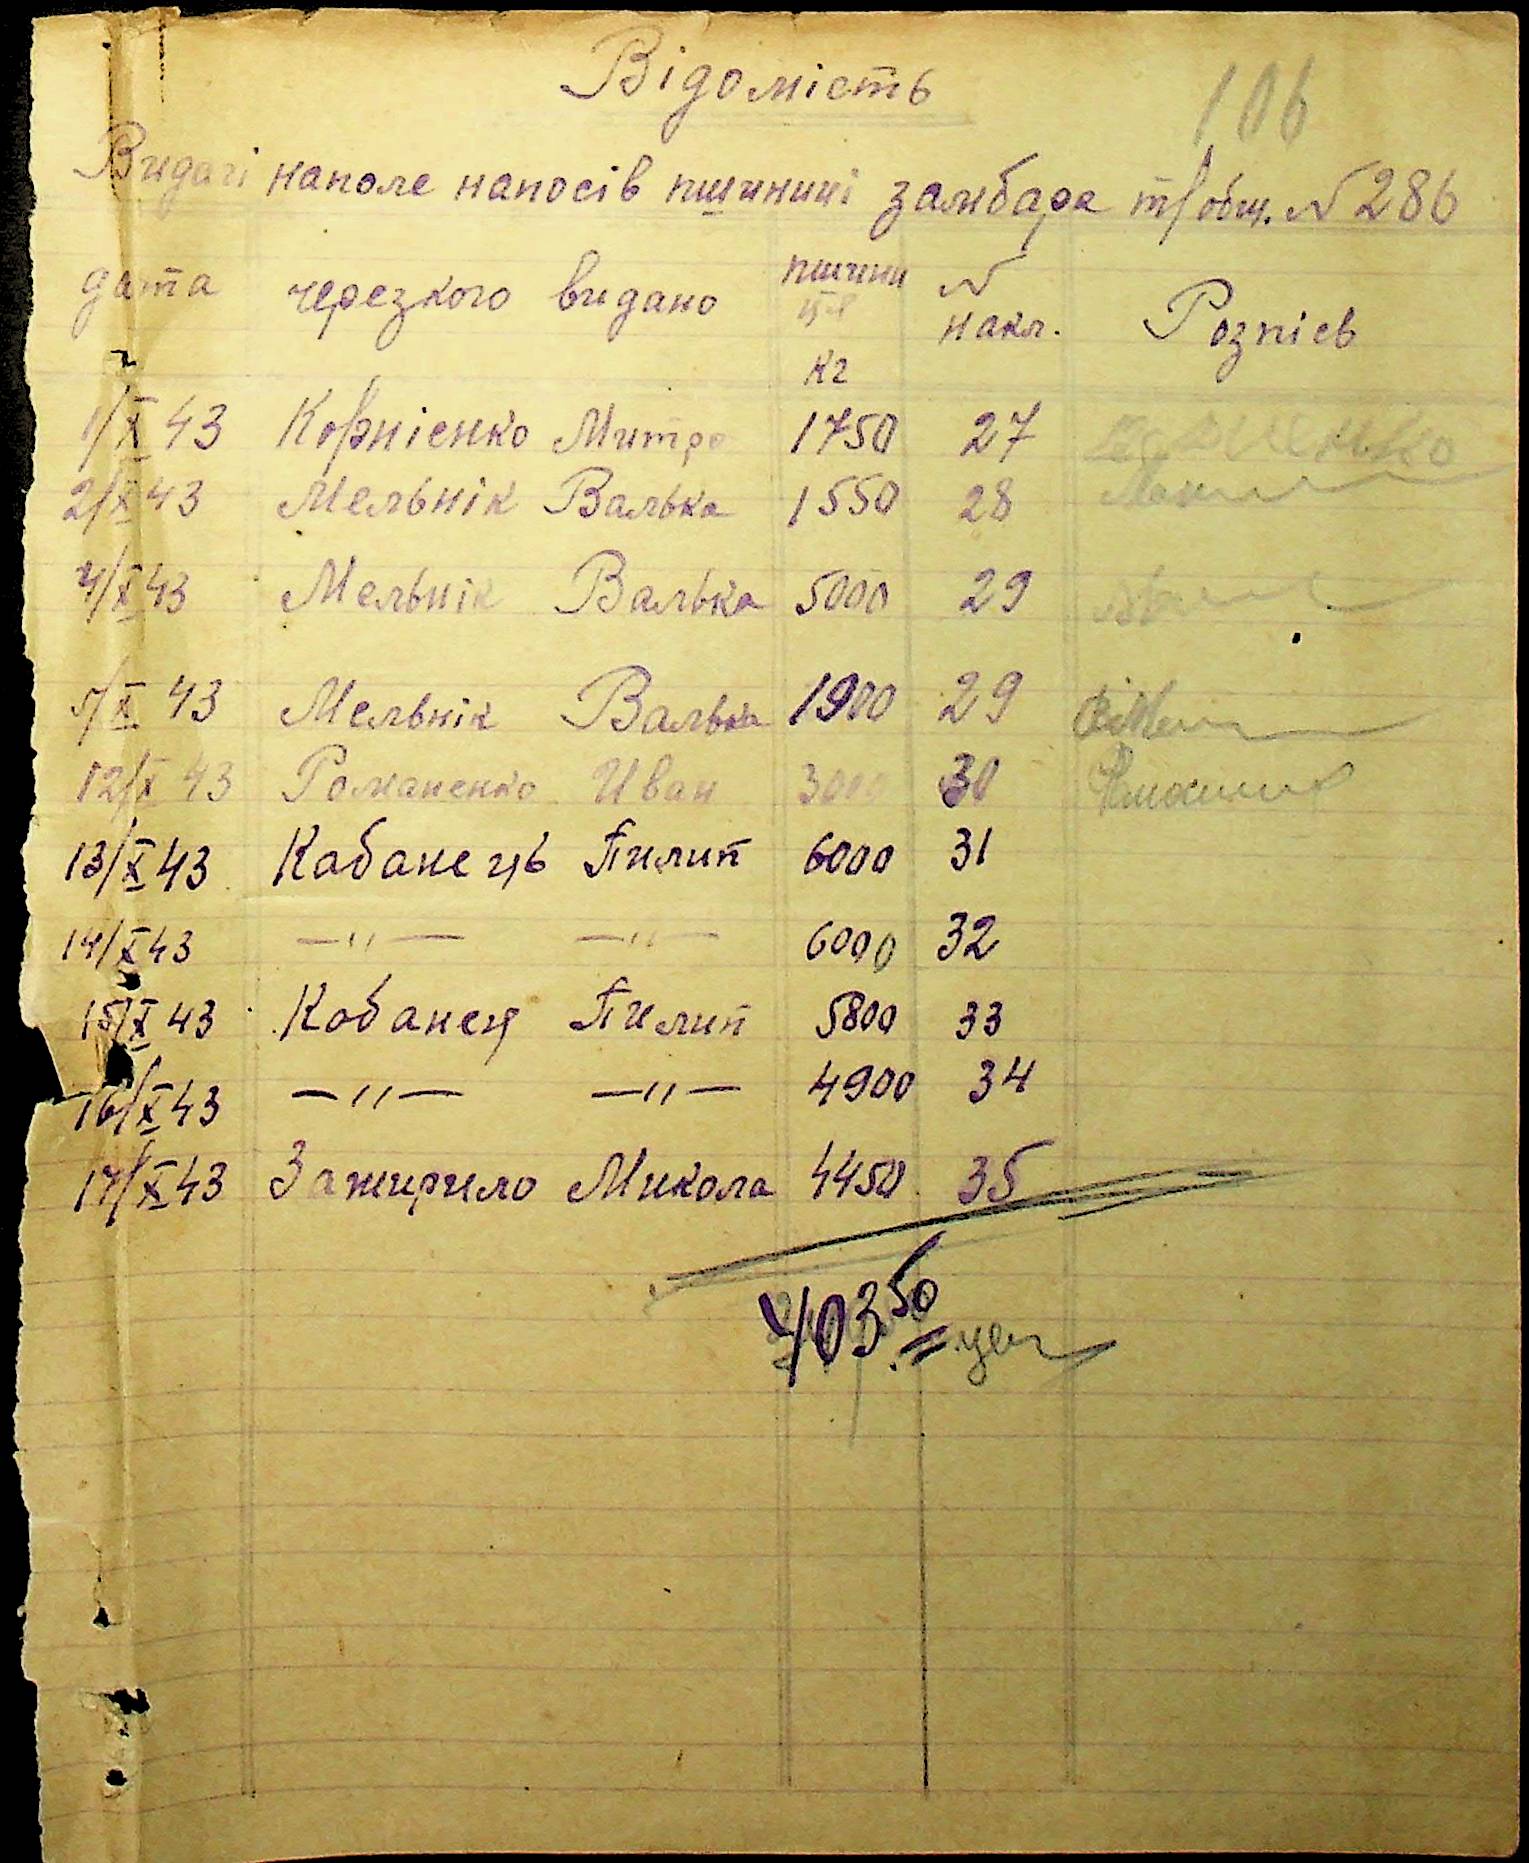 Відомість
106
Видачі наполе напосів пшиниці замбара т/общ. № 286
дата черезкого видано пшини № накл. Розпісь
кг
1/X 43 Корнієнко Митро 1750 27
2/X 43 Мельнік Валька 1550 28
4/X 43 Мельнік Валька 5000 29
5/X 43 Мельнік Валька 1900 29
12/X 43 Романенко Иван 3000 30
13/X 43 Кабанець Пилип 6000 31
14/X 43 —"— —"— 6000 32
15/X 43 Кобанец Пилип 5800 33
16/X 43 —"— —"— 4900 34
17/X 43 Зажирило Микола 4450 35
403 50